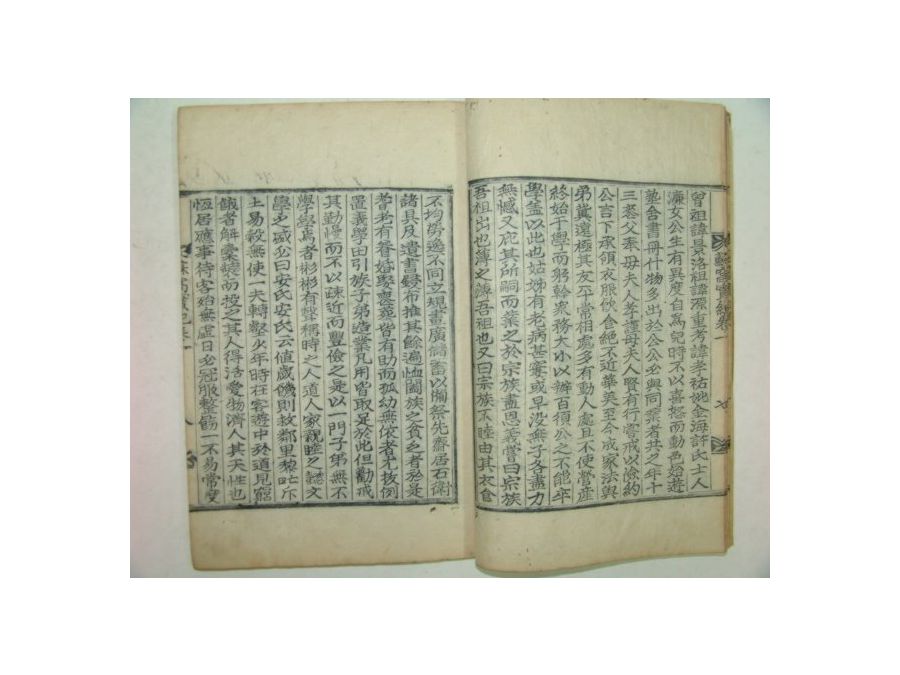 曾祖諱景洛祖諱源重考諱孝祐妣金海許氏士人
濂女公生有異度自爲兒時不以喜怒而動色始遊
塾舍書冊什物多出於公公必與同業者共之年十
三丧父奉母夫人孝謹母夫人賢有行嘗戒以儉約
公言下承領衣服飮食絶不近華美至今成家法與
弟冀還極其友于常相處多有動人處且不使營産
終始于學而躬幹衆務大小以辦百須公之不能卒
學盖以此也姑姊有老病甚寠或早没無子各盡力
無憾又庇其所嗣而業之於宗族盡恩義嘗曰宗族
吾祖出也薄之薄吾祖也又曰宗族不睦由其衣食
卷一
七
不均勞逸不同立規畫廣儲畜以備祭先齋居石儀
諸具及遺書鋟布推其餘遍恤闔族之貧乏者於是
耆老有養婚娶喪葬皆有助而孤幼無依者尤拔例
置義學田引族子弟造業凡用皆取足於此但勸戒
其勤慢而不以疎近而豐儉之是以一門子弟無不
學學焉者彬彬有聲稱時之人道人家親睦之懿文
學之盛必曰安氏安氏云値歲饑則救鄰里黎氓斥
土易穀無使一夫轉壑少年時在客遊中於道見窮
餓者解槖橐而投之其人得活愛物濟人其天性也
恆居應事待客殆無虛日必冠服整飭一不易常度
八